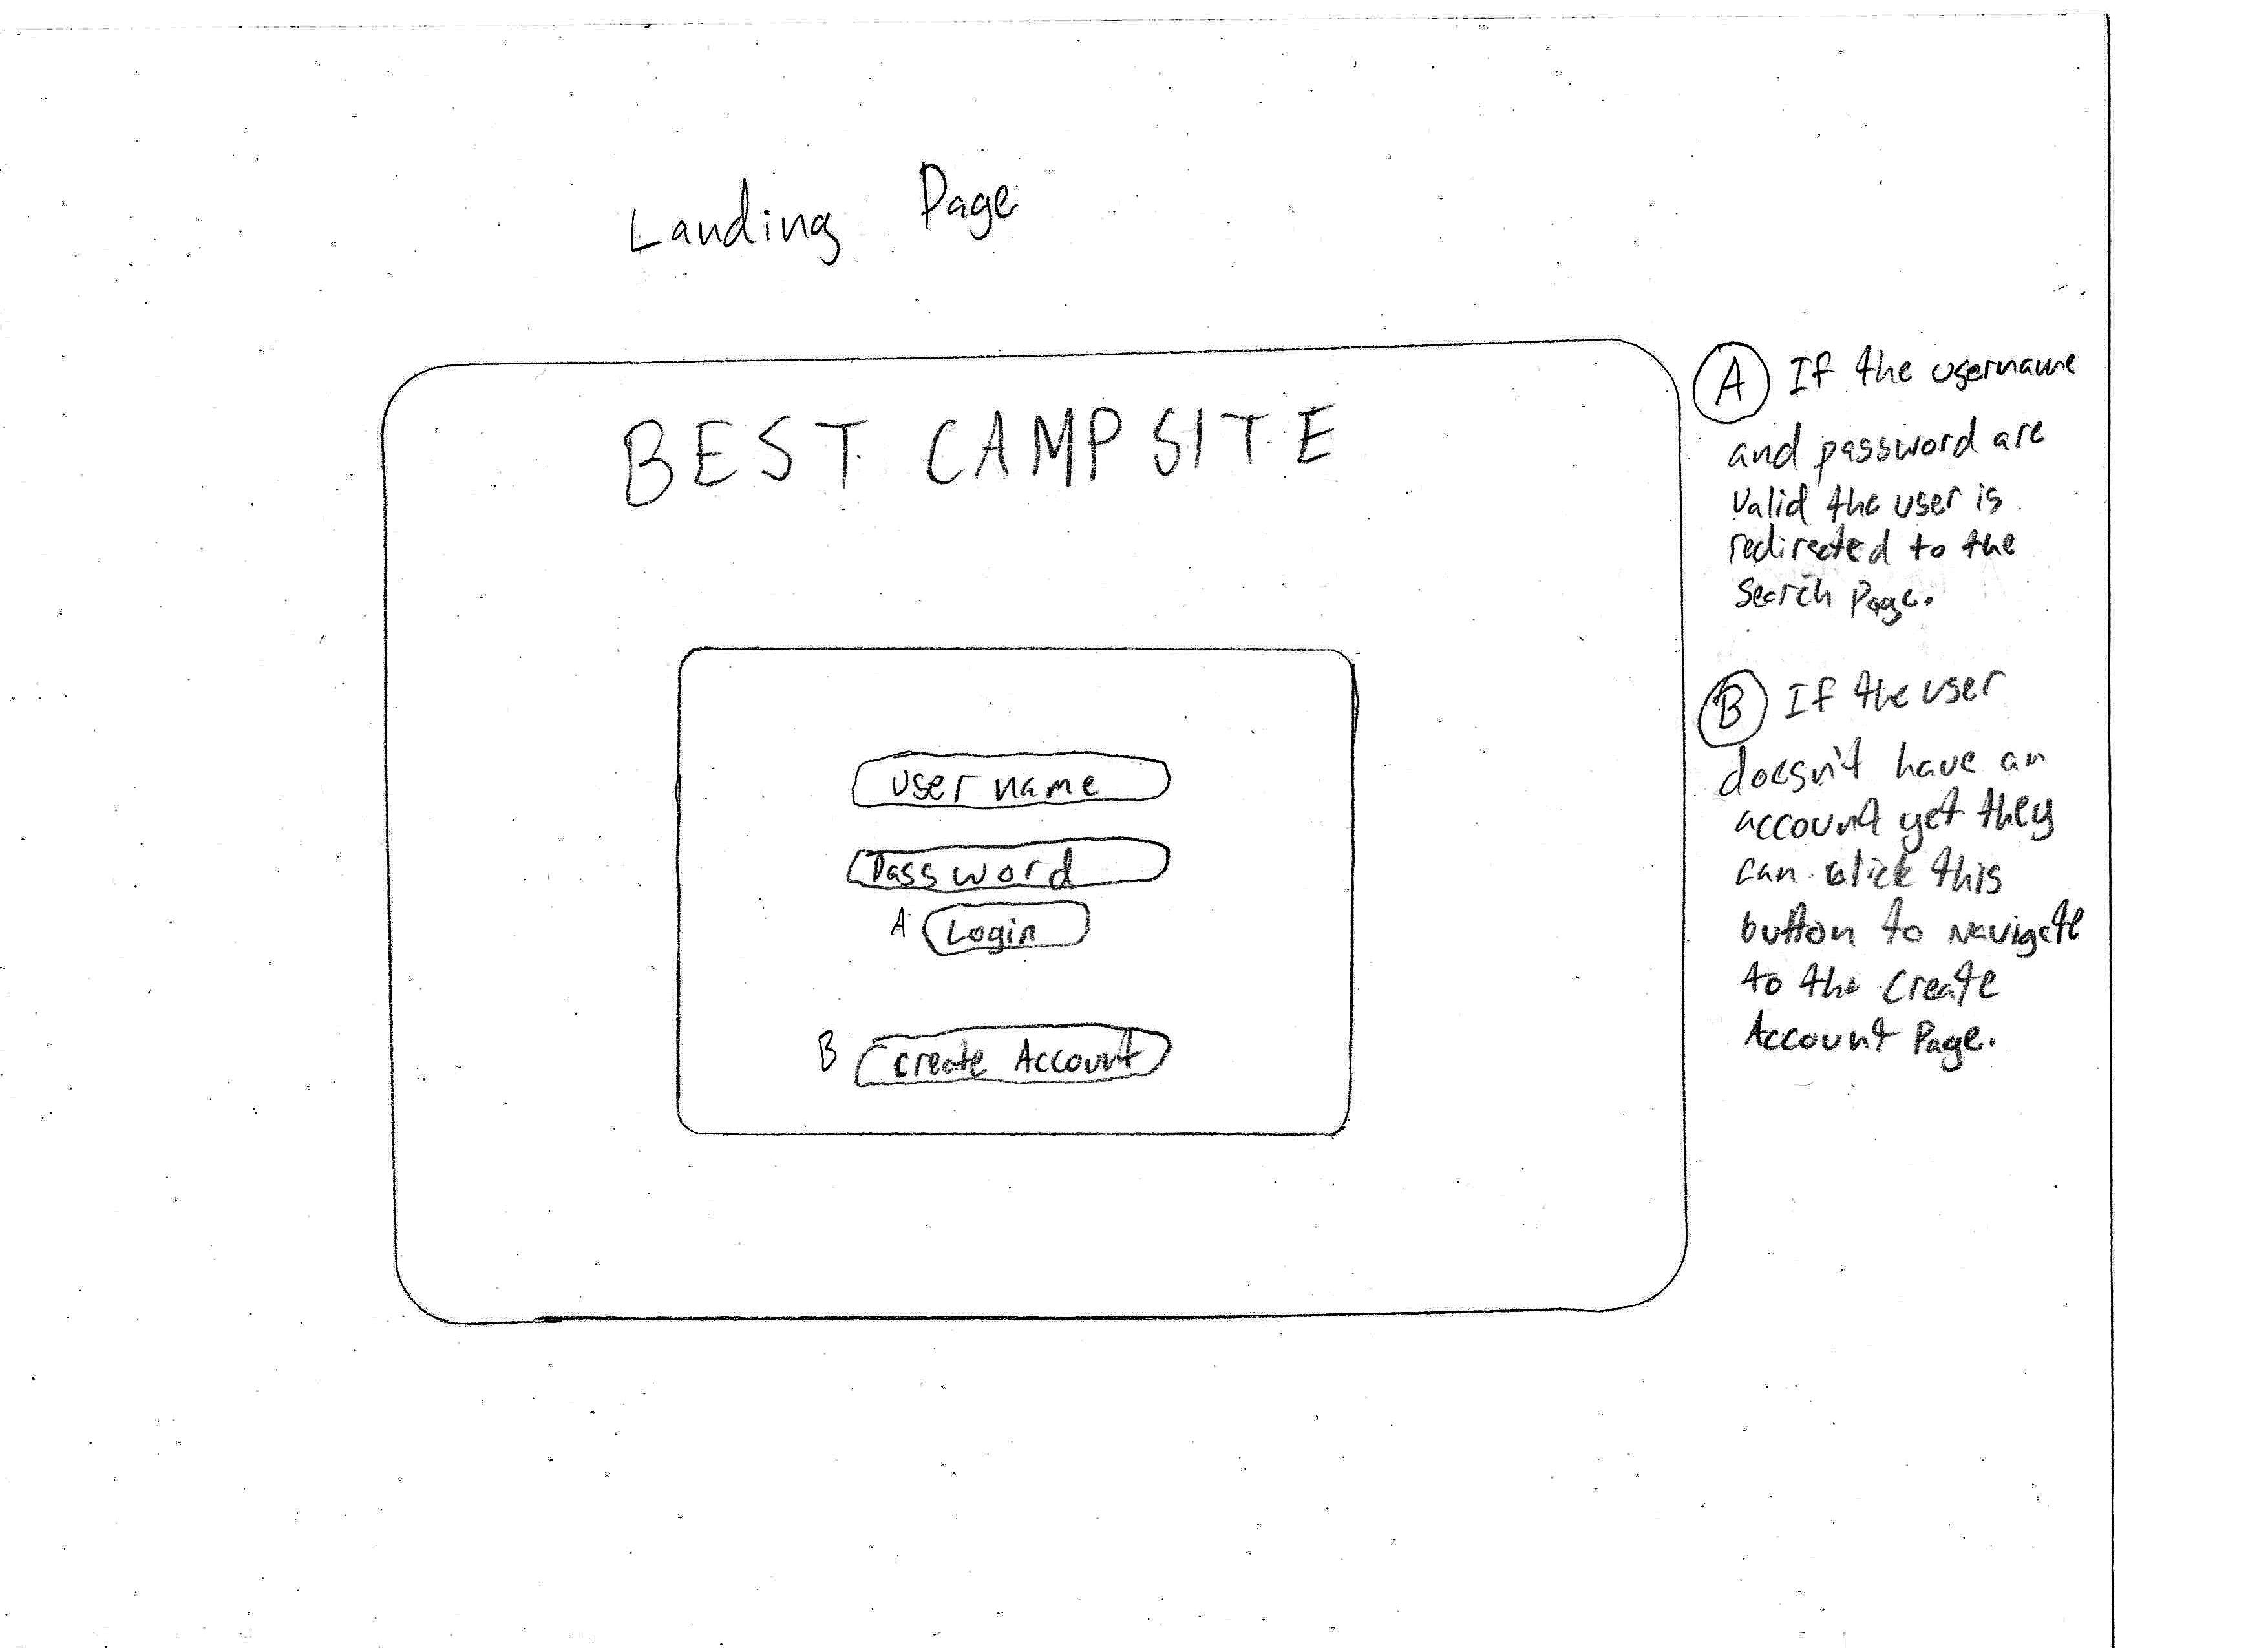 Landing Page
BEST CAMPSITE
username
Password
A Login
B Create Account
A If the username
and password are
valid the user is
redirected to the
Search Page.
B If the user
doesn't have an
account yet they
can click this
button to Navigate
to the Create
Account Page.